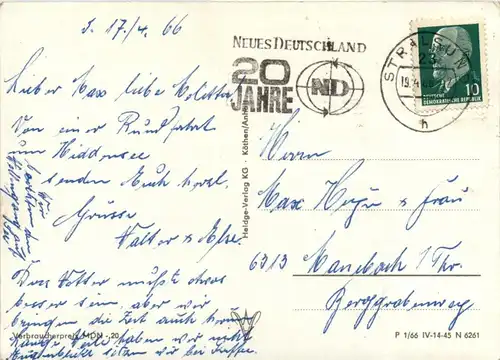 S. 17/4. 66
Lieber Max liebe Moletta
Von einer Rundfahrt
um Hiddensee
senden Euch herzl.
Grüsse
Walter & Else
Das Wetter müßte etwas
besser sein, aber wir
bringen die Zeit auch
haben wir nicht
sitzen wir bei Kaffee
Wir
Verbraucherpreis MDN -,20
Heldge-Verlag KG Köthen/Anh
NEUES DEUTSCHLAND
20
JAHRE
ND
STRALSUND
h
DEUTSCHE
DEMOKRATISCHE REPUBLIK
10
Herrn
Max Heyn & Frau
6313 Manebach / Thr.
Berggrabenweg
P 1/66 IV-14-45 N 6261